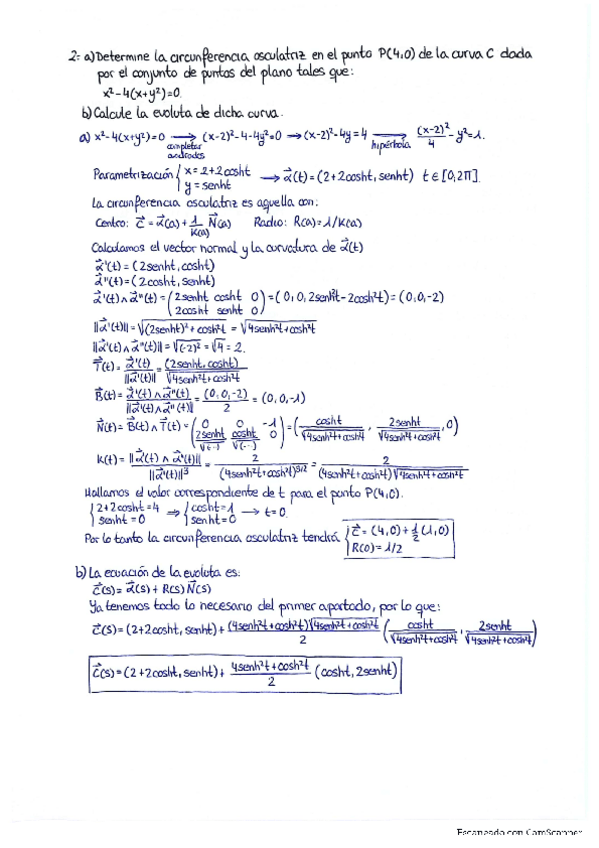 2: a) Determine la circunferencia osculatriz en el punto P(4,0) de la curva C dada
por el conjunto de puntos del plano tales que:
x²-4(x+y²)=0.
b) Calcule la evoluta de dicha curva.
a) x²-4(x+y²)=0 → (x-2)²-4-4y²=0 → (x-2)²-4y=4 → (x-2)²/4 - y²=1.
completar cuadrados
hipérbola
Parametrización { x=2+2cosht y=senht → α⃗(t)=(2+2cosht, senht) t∈[0,2π].
La circunferencia osculatriz es aquella con:
Centro: C⃗=α⃗(a)+1/K(a) N⃗(a) Radio: R(a)=1/K(a)
Calculamos el vector normal y la curvatura de α⃗(t)
α⃗'(t)=(2senht, cosht)
α⃗''(t)=(2cosht, senht)
α⃗'(t)∧α⃗''(t)=(2senht cosht 0 2cosht senht 0)=(0,0,2senh²t-2cosh²t)=(0,0,-2)
||α⃗'(t)||=√((2senht)²+cosh²t)=√(4senh²t+cosh²t)
||α⃗'(t)∧α⃗''(t)||=√(-2)²=√4=2.
T⃗(t)=α⃗'(t)/||α⃗'(t)||=(2senht, cosht)/√(4senh²t+cosh²t)
B⃗(t)=α⃗'(t)∧α⃗''(t)/||α⃗'(t)∧α⃗''(t)||=(0,0,-2)/2=(0,0,-1)
N⃗(t)=B⃗(t)∧T⃗(t)=(0 0 -1 2senht/√(-..) cosht/√(-..) 0)=(cosht/√(4senh²t+cosh²t), 2senht/√(4senh²t+cosh²t), 0)
K(t)=||α⃗'(t)∧α⃗''(t)||/||α⃗'(t)||³=2/(4senh²t+cosh²t)^3/2=2/(4senh²t+cosh²t)√(4senh²t+cosh²t)
Hallamos el valor correspondiente de t para el punto P(4,0).
{ 2+2cosht=4 senht=0 ⇒ { cosht=1 senht=0 → t=0.
Por lo tanto la circunferencia osculatriz tendrá { C⃗=(4,0)+1/2(1,0) R(0)=1/2
b) La ecuación de la evoluta es:
C⃗(s)=α⃗(s)+R(s)N⃗(s)
Ya tenemos todo lo necesario del primer apartado, por lo que:
C⃗(s)=(2+2cosht, senht)+(4senh²t+cosh²t)√(4senh²t+cosh²t)/2 (cosht/√(4senh²t+cosh²t), 2senht/√(4senh²t+cosh²t))
C⃗(s)=(2+2cosht, senht)+4senh²t+cosh²t/2 (cosht, 2senht)
Escaneado con CamScanner